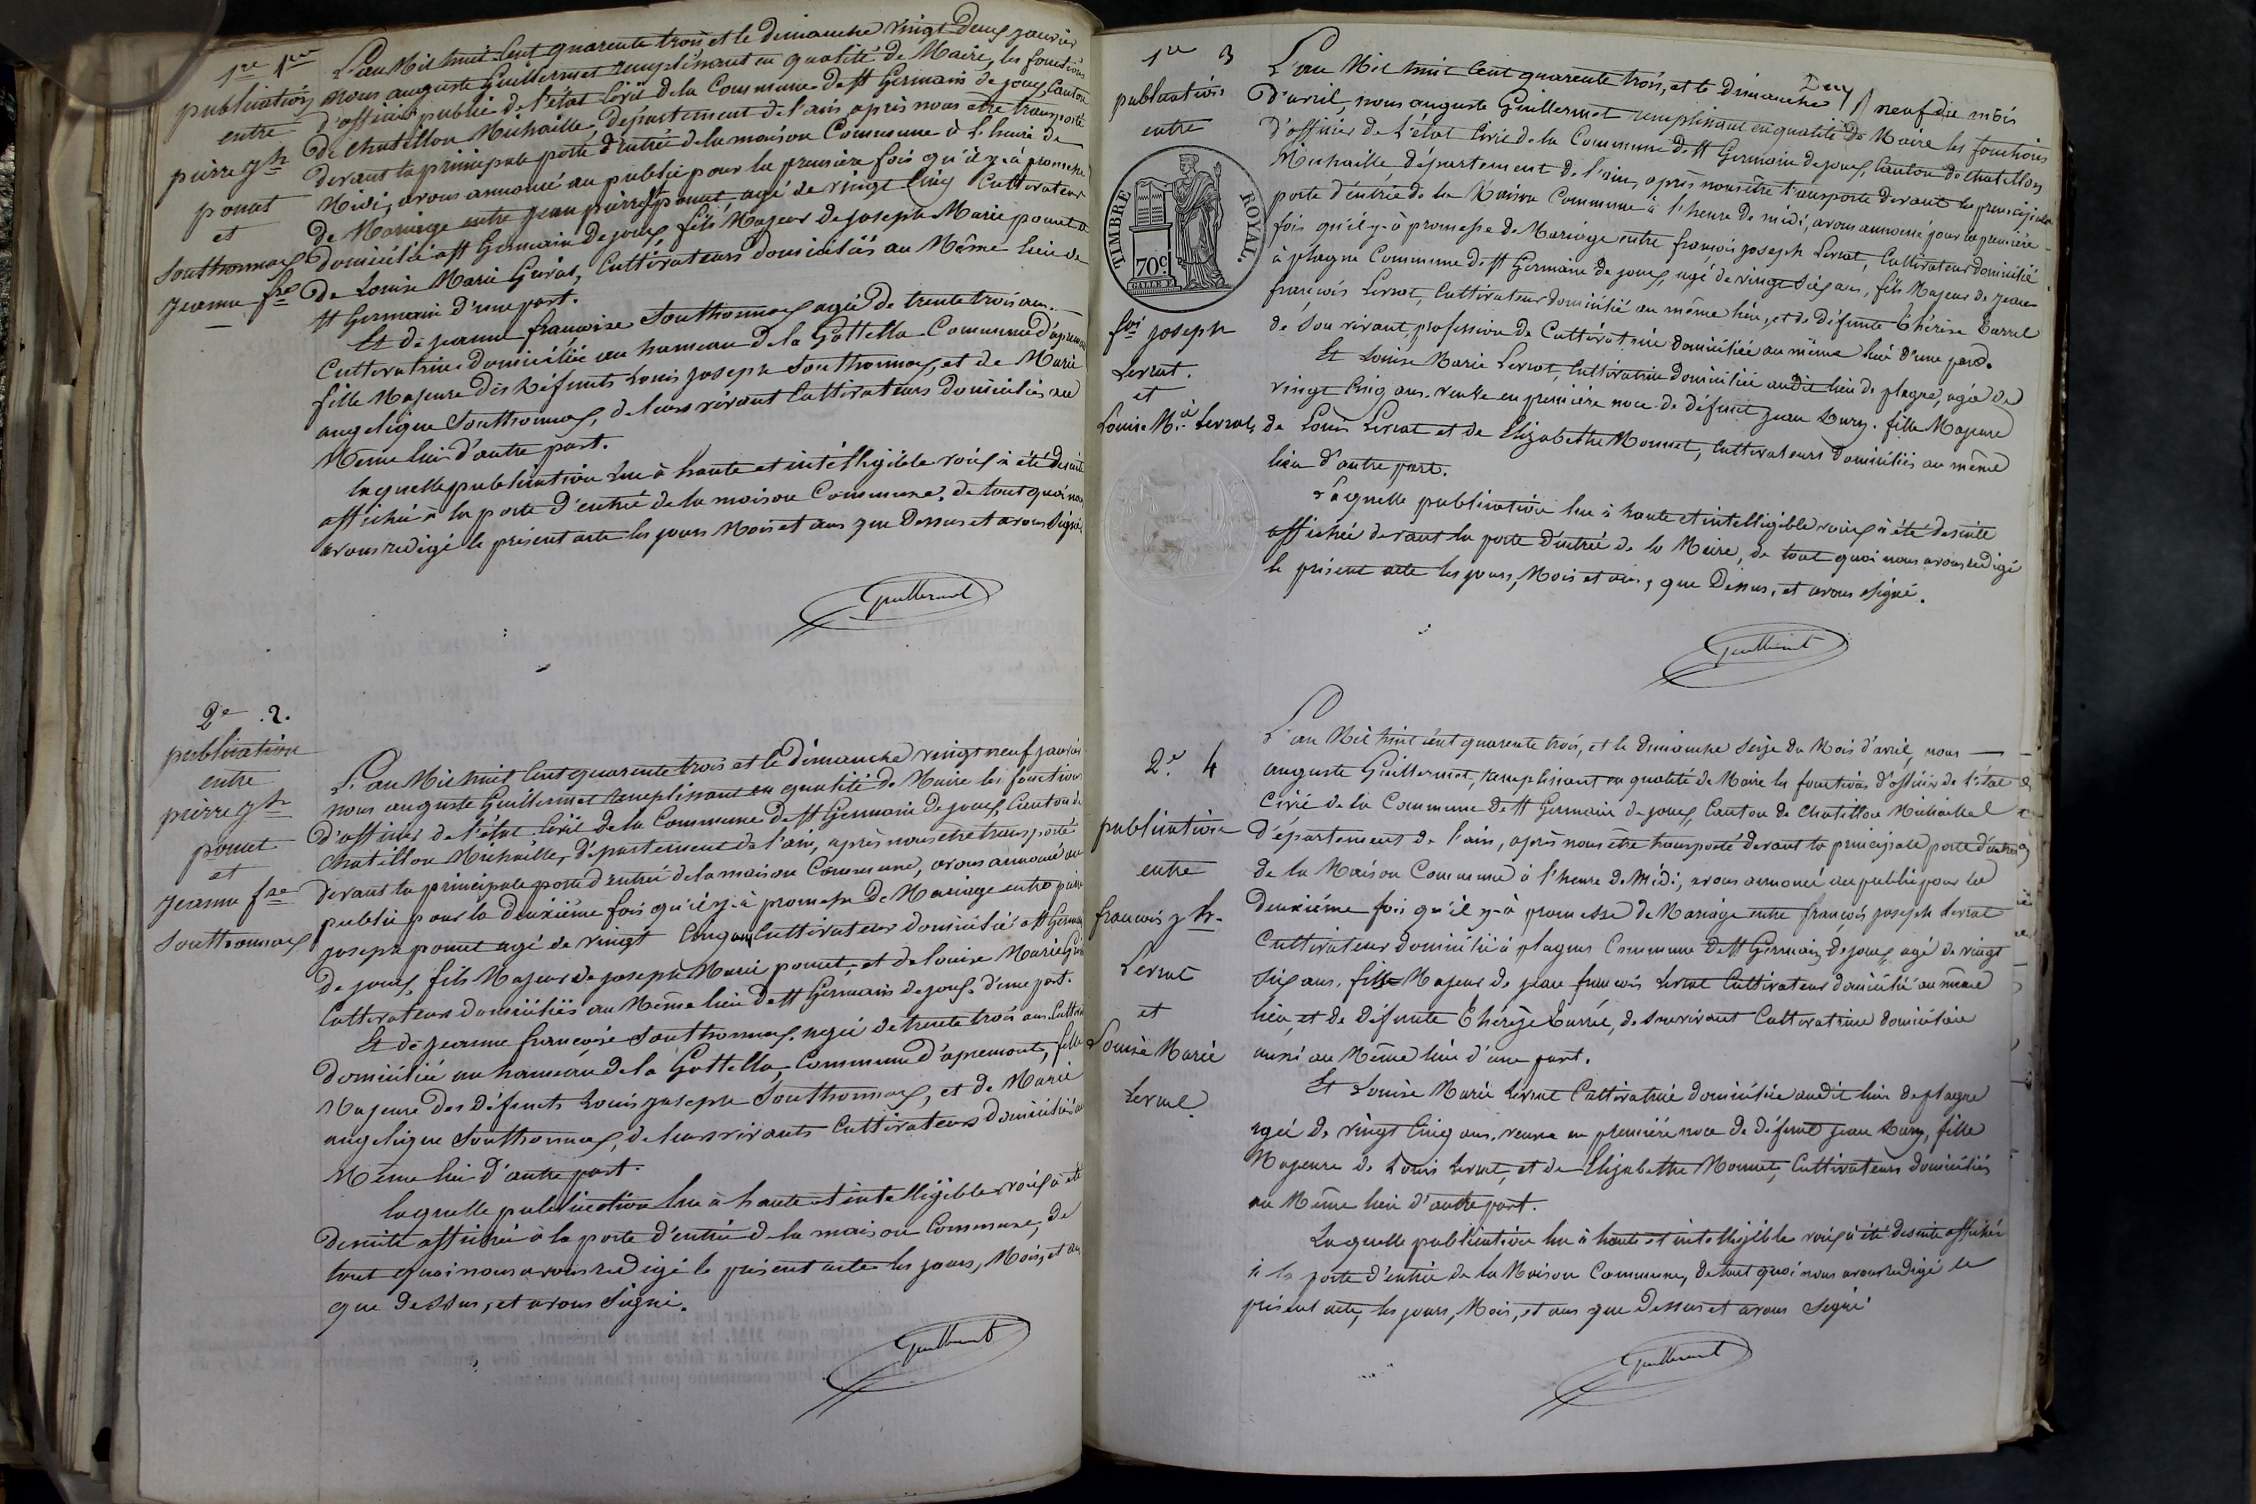 1re 1er
publication
entre
pierre jh
ponet
et
Southonnax
jeanne fse
L'an Mil huit Cent quarente trois et le dimanche vingt Deux janvier
nous auguste Guillermet remplissant en qualité de Maire, les fonctions
d'officier public de l'état Civil de la Commune de St Germain de joux, Canton
de Chatillon Michaille, département de l'ain après nous être transporté
devant la principale porte d'entrée de la maison Commune à L'heure de
Midi, avons annoncé au public pour la première fois qu'il y-a promesse
de Mariage entre jean pierre ponet, agé de vingt Cinq Cultivateur
domicilié a St Germain de joux, fils Majeur de joseph Marie ponet &
de Louise Marie Gras, Cultivateurs domiciliés au Même lieu de
St Germain d'une part.
Et de jeanne françoise Southonnax agée de trente trois ans
Cultivatrice domiciliée au hameau de la Gottella Commune d'apremont
fille Majeure des Défunts Louis joseph Southonnax, et de Marie
angelique Southonnax, de leurs vivant Cultivateurs domiciliés au
Même lieu d'autre part.
laquelle publication lue à haute et intélligible voix à été de suite
affichée à la porte d'entrée de la maison Commune, de tout quoi nous
avons redigé le présent acte les jours Mois et ans que Dessus et avons Signé.
Guillermet
2e .2.
publication
entre
pierre jh
ponet
et
jeanne fse
Southonnax
L'an Mil huit Cent quarente trois et le dimanche vingt neuf janvier
nous auguste Guillermet remplissant en qualité de Maire les fonctions
d'officier de l'état Civil de la Commune de St Germain de joux, Canton de
Chatillon Michaille, département de l'ain, après nous être transporté
devant la principale porte d'entrée de la maison Commune, avons annoncé au
public pour la deuxième fois qu'il y-a promesse de Mariage entre pierre
joseph ponet agé de vingt Cinq ans Cultivateur domicilié a St Germain
de joux, fils Majeur de joseph Marie ponet, et de louise Marie Gras
Cultivateurs domiciliés au Même lieu de St Germain de joux d'une part.
Et de jeanne françoise Southonnax agée de trente trois ans Cultiv
domiciliée au hameau de la Gottella, Commune d'apremont, fille
Majeure des Défunts Louis joseph Southonnax, et de Marie
angelique Southonnax, de leurs vivants Cultivateurs domiciliés au
Même lieu d'autre part.
laquelle publication lue à haute et intelligible voix à été
de suite affichée à la porte d'entrée de la maison Commune, de
tout quoi nous avons redigé le présent acte les jours, Mois, et an
que dessus, et avons Signé.
Guillermet
1re 3
publication
entre
TIMBRE ROYAL.
70c
fois joseph
Levrat.
et
Louise Mie Levrat
L'an Mil huit Cent quarente trois, et le dimanche Deux neuf du mois
d'avril, nous auguste Guillermet remplissant en qualité de Maire les fonctions
d'officier de L'état Civil de la Commune de St Germain de joux, Canton de Chatillon
Michaille, département de l'ain, après nous être transporté devant la principale
porte d'entrée de la Maison Commune à l'heure de midi, avons annoncé pour la première
fois qu'il y-à promesse de Mariage entre françois joseph Levrat, Cultivateur domicilié
à plagne Commune de St Germain de joux, agé de vingt Six ans, fils Majeur de jean
françois Levrat, Cultivateur domicilié au même lieu, et de défunte Thérèse Barrel
de Son vivant, profession de Cultivatrice domiciliée au même lieu d'une part.
Et Louise Marie Levrat, Cultivatrice domiciliée audit lieu de plagne, agée de
vingt Cinq ans veuve en première noce de défunt jean Dury, fille Majeure
de Louis Levrat et de Elizabethe Monnet, Cultivateurs domiciliés au même
lieu d'autre part.
Laquelle publication lue à haute et intelligible voix à été de suite
affichée devant la porte d'entrée de la Maire, de tout quoi nous avons redigé
le présent acte les jours, Mois et ans, que Dessus, et avons Signé.
Guillermet
2e 4
publication
entre
françois jh
Levrat
et
Louise Marie
Levrat
L'an Mil huit cent quarente trois, et le dimanche Seize du Mois d'avril, nous
auguste Guillermet, remplissant en qualité de Maire les fonctions d'officier de l'état
Civil de la Commune de St Germain de joux, Canton de Chatillon Michaille
département de l'ain, après nous être transporté devant la principale porte d'entrée
de la Maison Commune à l'heure de Midi, avons annoncé au public pour la
deuxiéme fois qu'il y-à promesse de Mariage entre françois joseph Levrat
Cultivateur domicilié à plagne Commune de St Germain de joux, agé de vingt
Six ans, fils Majeur de jean françois Levrat Cultivateur domicilié au même
lieu, et de défunte Thérèse Barrel, de Son vivant Cultivatrice domiciliée
aussi au Même lieu d'une part.
Et Louise Marie Levrat Cultivatrice domiciliée audit lieu de plagne
agée de vingt Cinq ans, veuve en première noce de défunt jean Dury, fille
Majeure de Louis Levrat, et de Elizabethe Monnet, Cultivateurs domiciliés
au Même lieu d'autre part.
Laquelle publication lue à haute et intelligible voix à été de suite affichée
à la porte d'entrée de la Maison Commune, de tout quoi nous avons redigé le
présent acte, les jours, Mois, et ans que Dessus et avons Signé
Guillermet